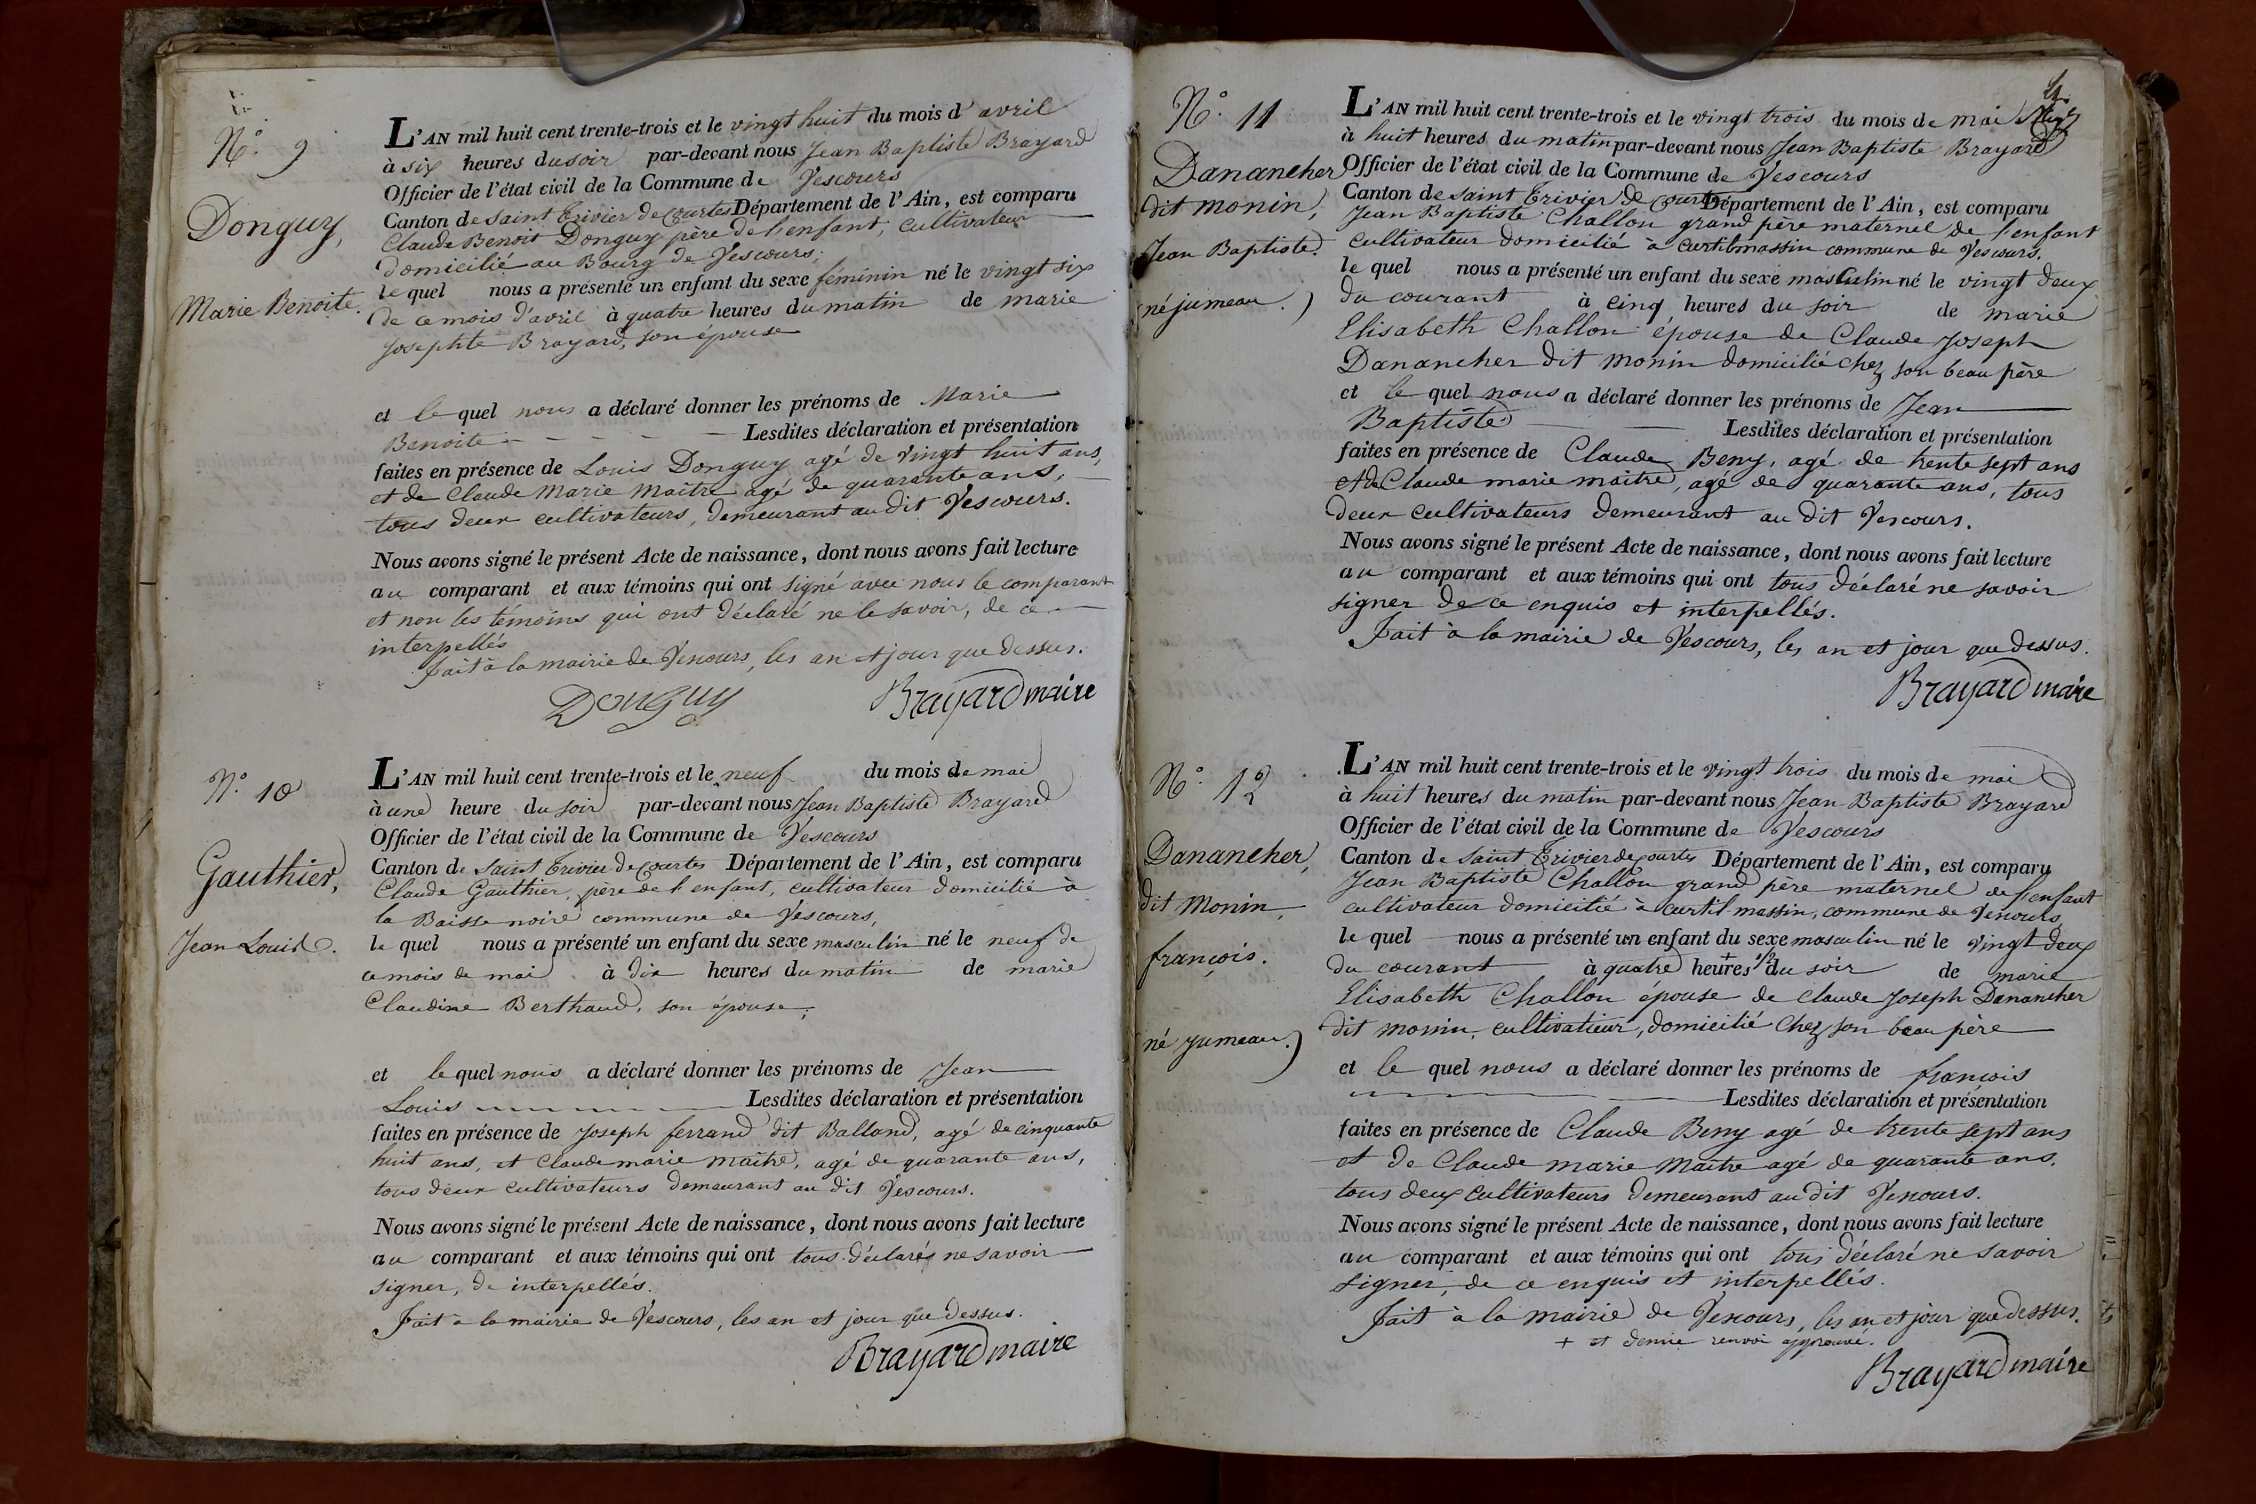 N.° 9
Donguy,
Marie Benoite.
L'AN mil huit cent trente-trois et le vingt huit du mois d'avril
à six heures du soir par-devant nous Jean Baptiste Brayard
Officier de l'état civil de la Commune de Vescours
Canton de Saint Trivier de Courtes Département de l'Ain, est comparu
Claude Benoit Donguy père de l'enfant, cultivateur
domicilié au Bourg de Vescours;
le quel nous a présenté un enfant du sexe féminin né le vingt six
de ce mois d'avril à quatre heures du matin de marie
Josephte Brayard, son épouse
et le quel nous a déclaré donner les prénoms de Marie
Benoite Lesdites déclaration et présentation
faites en présence de Louis Donguy agé de vingt huit ans,
et de Claude Marie Maitre agé de quarante ans,
tous deux cultivateurs, demeurant au dit Vescours.
Nous avons signé le présent Acte de naissance, dont nous avons fait lecture
au comparant et aux témoins qui ont signé avec nous le comparant
et non les témoins qui ont déclaré ne le savoir, de ce
interpellés
fait à la mairie de Vescours, les an et jour que dessus.
Donguy Brayard maire
N.° 10
Gauthier,
Jean Louis.
L'AN mil huit cent trente-trois et le neuf du mois de mai
à une heure du soir par-devant nous Jean Baptiste Brayard
Officier de l'état civil de la Commune de Vescours
Canton de Saint Trivier de Courtes Département de l'Ain, est comparu
Claude Gauthier, père de l'enfant, cultivateur domicilié à
la Baisse noire commune de Vescours,
le quel nous a présenté un enfant du sexe masculin né le neuf de
ce mois de mai à dix heures du matin de marie
Claudine Berthaud, son épouse,
et le quel nous a déclaré donner les prénoms de Jean
Louis Lesdites déclaration et présentation
faites en présence de Joseph ferrand dit Balland, agé de cinquante
huit ans, et Claude marie maitre, agé de quarante ans,
tous deux cultivateurs demeurant au dit Vescours.
Nous avons signé le présent Acte de naissance, dont nous avons fait lecture
au comparant et aux témoins qui ont tous déclarés ne savoir
signer, de interpellés.
Fait à la mairie de Vescours, les an et jour que dessus.
Brayard maire
N.° 11
Danancher
dit monin,
Jean Baptiste.
(né jumeau.)
L'AN mil huit cent trente-trois et le vingt trois du mois de mai
à huit heures du matin par-devant nous Jean Baptiste Brayard
Officier de l'état civil de la Commune de Vescours
Canton de Saint Trivier de Courtes Département de l'Ain, est comparu
Jean Baptiste Challon grand père maternel de l'enfant
cultivateur domicilié à Curtilmassin commune de Vescours.
le quel nous a présenté un enfant du sexe masculin né le vingt deux
du courant à cinq heures du soir de marie
Elisabeth Challon épouse de Claude Joseph
Danancher dit monin domicilié chez son beau père
et le quel nous a déclaré donner les prénoms de Jean
Baptiste Lesdites déclaration et présentation
faites en présence de Claude Beny, agé de trente sept ans
et de Claude marie maitre, agé de quarante ans, tous
deux cultivateurs demeurant au dit Vescours.
Nous avons signé le présent Acte de naissance, dont nous avons fait lecture
au comparant et aux témoins qui ont tous déclaré ne savoir
signer de ce enquis et interpellés.
Fait à la mairie de Vescours, les an et jour que dessus.
Brayard maire
N.° 12
Danancher,
dit Monin,
françois.
(né jumeau.)
L'AN mil huit cent trente-trois et le vingt trois du mois de mai
à huit heures du matin par-devant nous Jean Baptiste Brayard
Officier de l'état civil de la Commune de Vescours
Canton de Saint Trivier de Courtes Département de l'Ain, est comparu
Jean Baptiste Challon grand père maternel de l'enfant
cultivateur domicilié à Curtil massin, commune de Vescours
le quel nous a présenté un enfant du sexe masculin né le vingt deux
du courant à quatre heures + 1/2 du soir de marie
Elisabeth Challon épouse de Claude Joseph Danancher
dit monin, cultivateur, domicilié chez son beau père
et le quel nous a déclaré donner les prénoms de françois
Lesdites déclaration et présentation
faites en présence de Claude Beny agé de trente sept ans
et de Claude marie maitre agé de quarante ans,
tous deux cultivateurs demeurant au dit Vescours.
Nous avons signé le présent Acte de naissance, dont nous avons fait lecture
au comparant et aux témoins qui ont tous déclaré ne savoir
signer, de ce enquis et interpellés.
Fait à la mairie de Vescours, les an et jour que dessus.
+ et demie renvoi approuvé.
Brayard maire